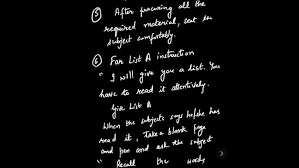 ⑤ After procuring all the
required material, seat the
subject comfortably.
⑥ For List A instruction
" I will give you a list. You
have to read it attentively.
Give List A
When the subjects says he/she has
read it, take a blank page
and pen and ask the subject
"Recall the words